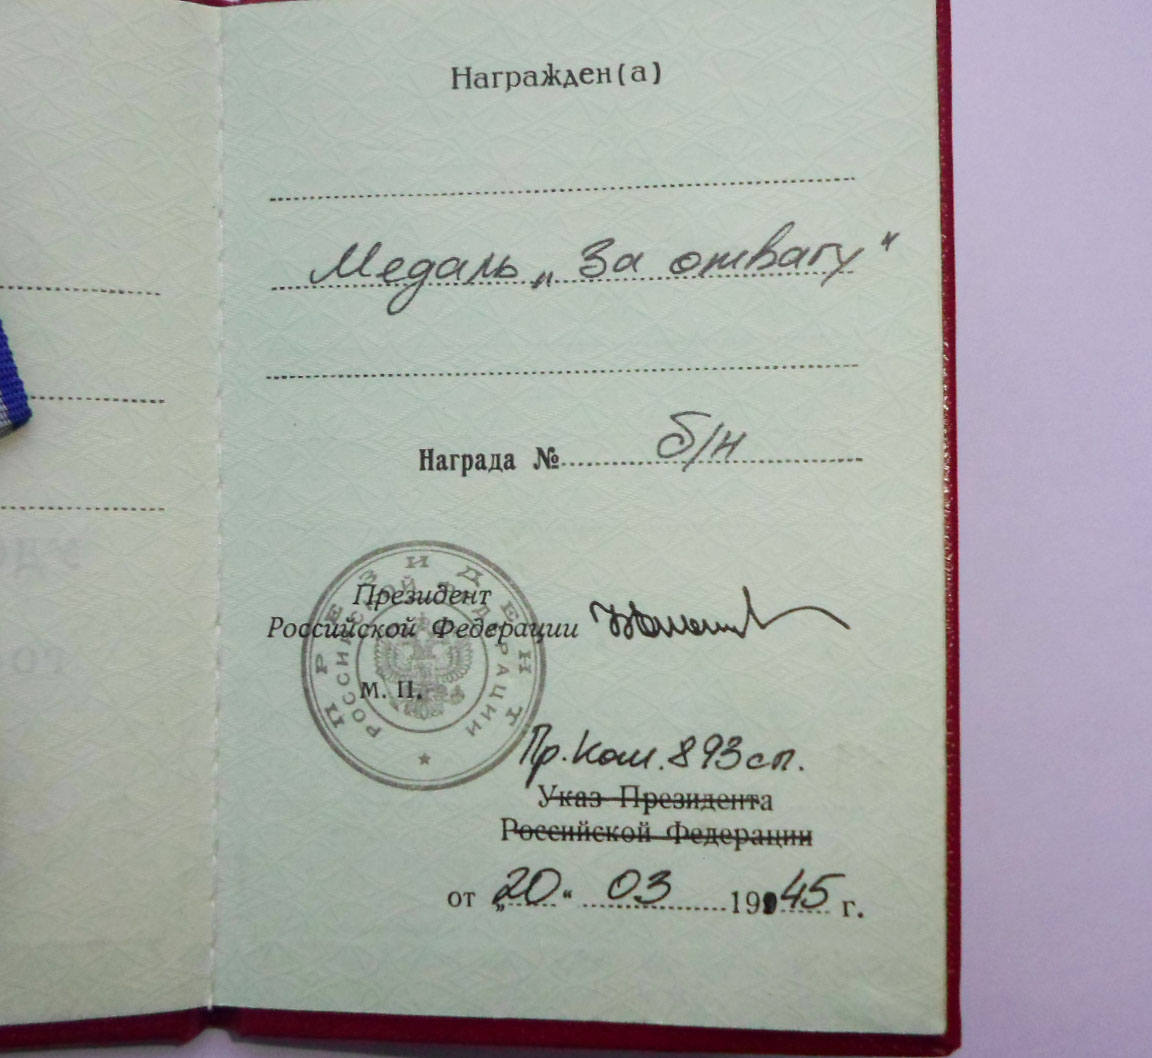 Награжден(а)
Медаль „За отвагу"
Награда № б/н
ПРЕЗИДЕНТ
РОССИЙСКОЙ ФЕДЕРАЦИИ
Президент
Российской Федерации
М. П.
Пр. Ком. 893 сп.
Указ Президента
Российской Федерации
от „20“ 03 1945 г.